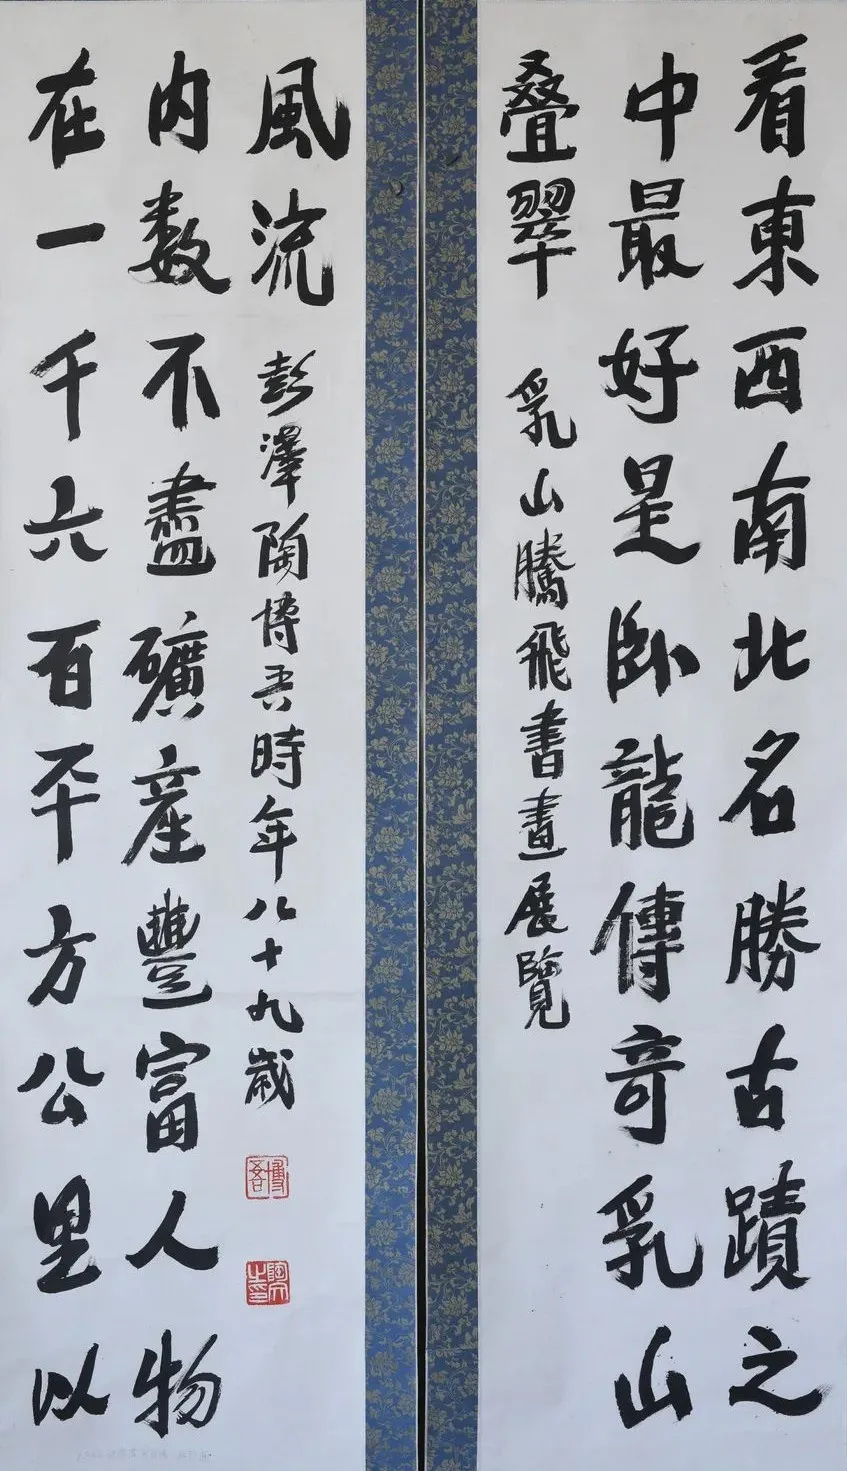 看東西南北名勝古蹟之
中最好是卧龍傳奇乳山
叠翠
乳山騰飛書畫展覽
在一千六百平方公里以
内數不盡礦產豐富人物
風流
彭澤陶博吾時年八十九歲
博吾
陶文之印